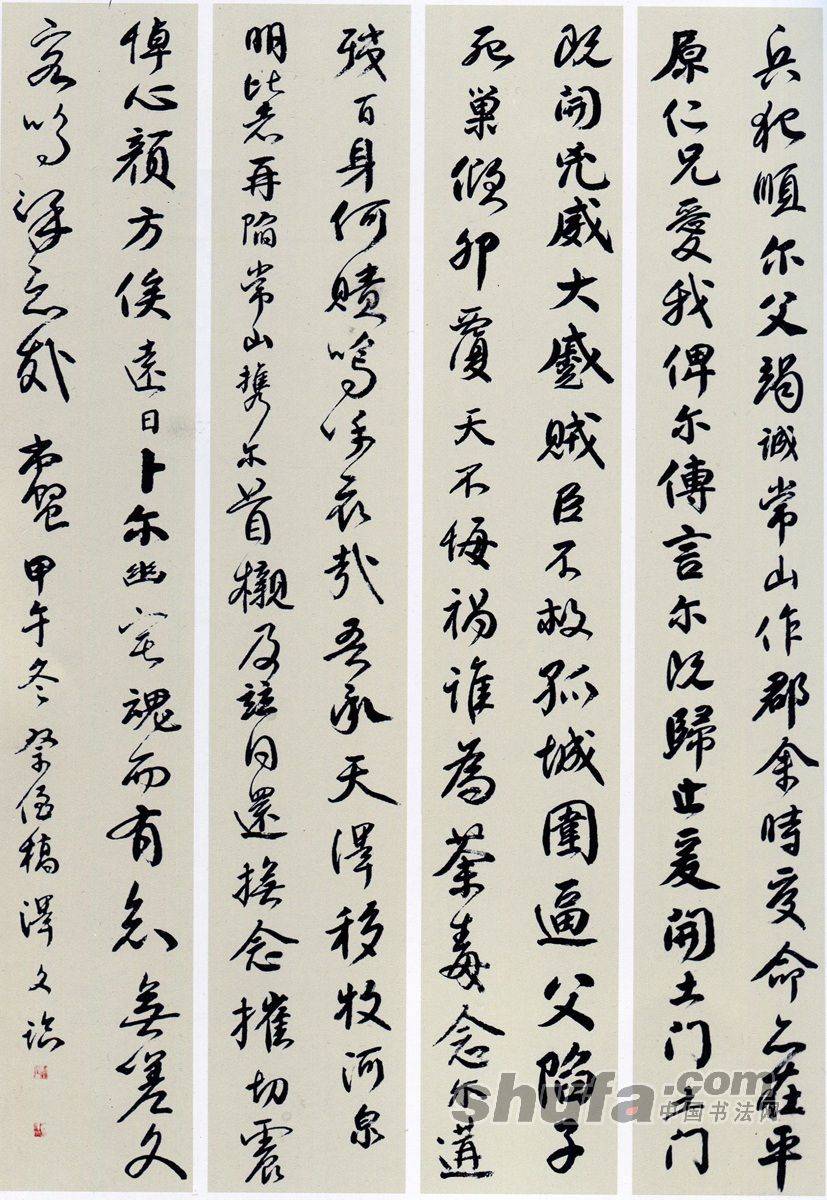 兵犯順尔父竭誠常山作郡余時受命亦在平
原仁兄愛我俾尔傳言尔既歸止爰開土门土门
既開兇威大蹙賊臣不救孤城圍逼父陷子
死巢傾卵覆天不悔禍誰為荼毒念尔遘
殘百身何贖嗚呼哀哉吾承天澤移牧河泉
明比者再陷常山携尔首櫬及兹同還撫念摧切震
悼心顔方俟遠日卜尔幽宅魂而有知無嗟久
客嗚呼哀哉尚饗 甲午冬 祭侄稿 澤文臨
shufa.com
中国书法网